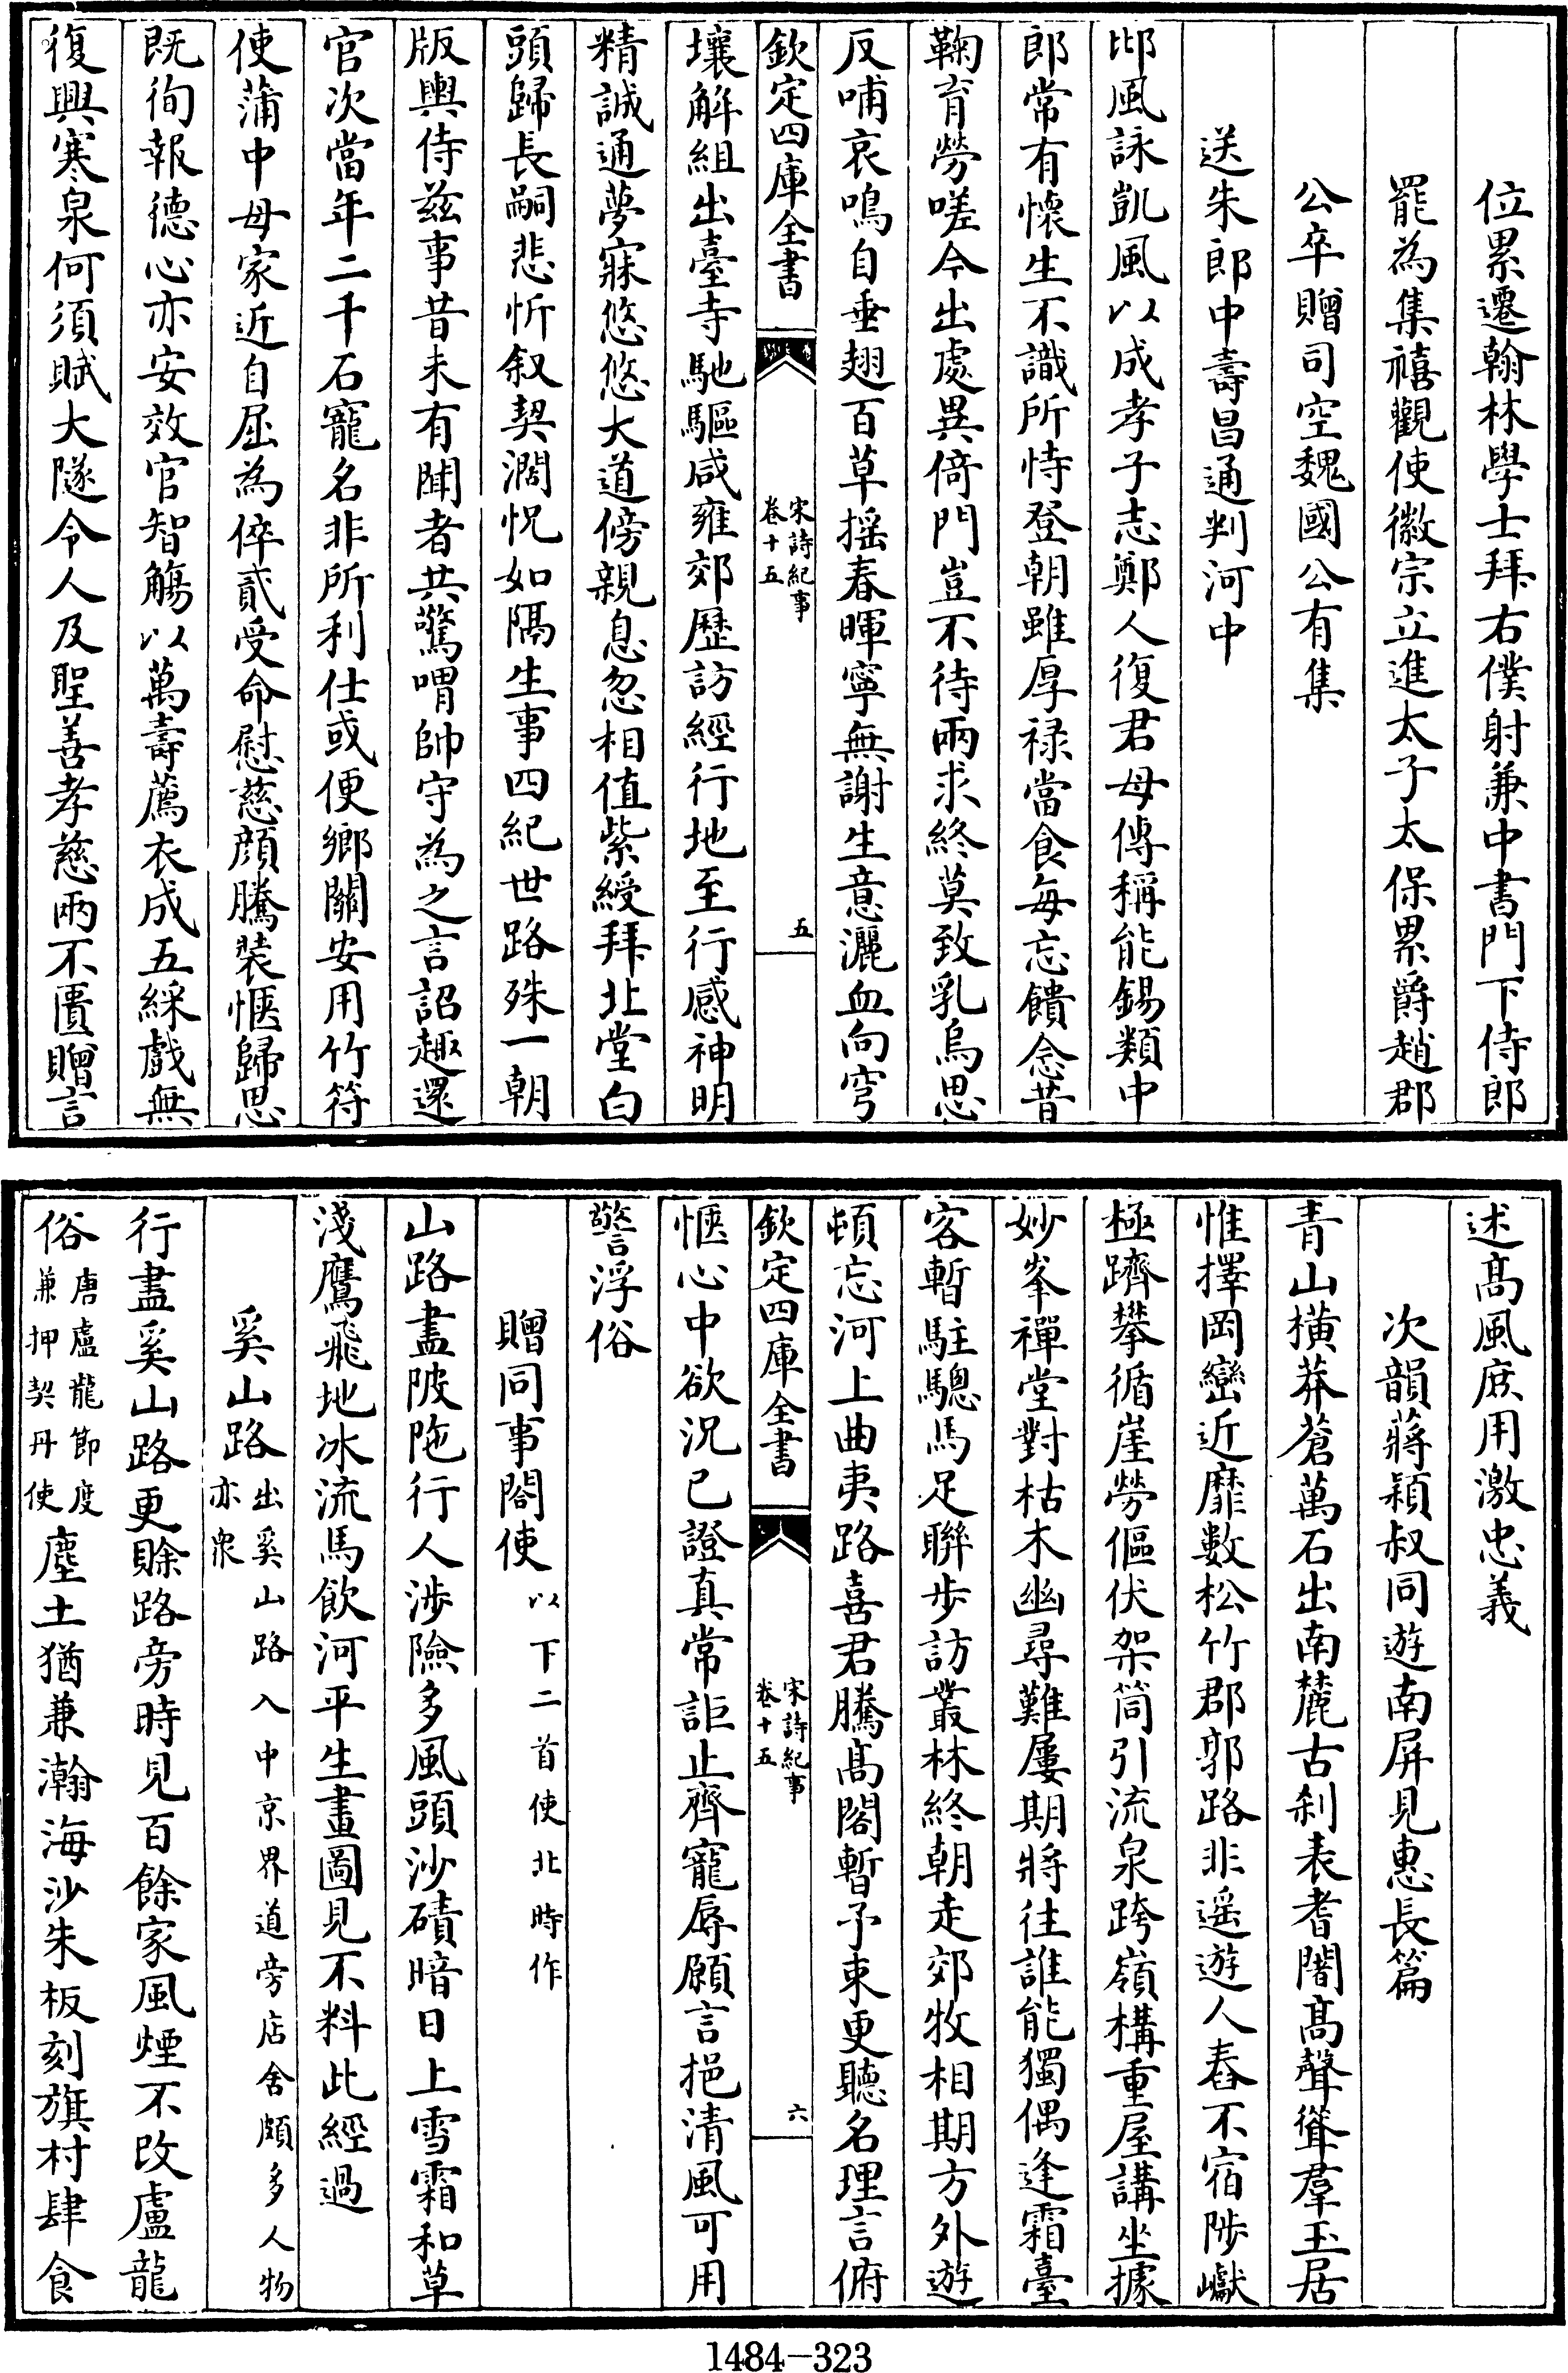 位累遷翰林學士拜右僕射兼中書門下侍郎
罷為集禧觀使徽宗立進太子太保累爵趙郡
公卒贈司空魏國公有集
送朱郎中壽昌通判河中
邶風詠凱風以成孝子志鄭人復君母傳稱能錫類中
郎常有懷生不識所恃登朝雖厚禄當食每忘饋念昔
鞠育勞嗟今出處異倚門豈不待兩求終莫致乳烏思
反哺哀鳴自垂翅百草摇春暉寧無謝生意灑血向穹
欽定四庫全書
宋詩紀事
卷十五
五
壤解組出臺寺馳驅咸雍郊歷訪經行地至行感神明
精誠通夢寐悠悠大道傍親息忽相值紫綬拜北堂白
頭歸長嗣悲忻叙契濶怳如隔生事四紀世路殊一朝
版輿侍兹事昔未有聞者共驚喟帥守為之言詔趣還
官次當年二千石寵名非所利仕或便鄉關安用竹符
使蒲中母家近自屈為倅貳受命慰慈顔騰裝愜歸思
既徇報德心亦安效官智觴以萬壽薦衣成五綵戲無
復興寒泉何須賦大隧令人及聖善孝慈兩不匱贈言
述髙風庶用激忠義
次韻蔣穎叔同遊南屏見惠長篇
青山橫莽蒼萬石出南麓古刹表耆闍髙聲聳羣玉居
惟擇岡巒近靡數松竹郡郭路非遥遊人舂不宿陟巘
極躋攀循崖勞傴伏架筒引流泉跨嶺構重屋講坐據
妙峯禪堂對枯木幽尋難屢期將往誰能獨偶逢霜臺
客暫駐驄馬足聯步訪叢林終朝走郊牧相期方外遊
頓忘河上曲夷路喜君騰髙閣暫予束更聽名理言俯
欽定四庫全書
宋詩紀事
卷十五
六
愜心中欲況已證真常詎止齊寵辱願言挹清風可用
警浮俗
贈同事閤使以下二首使北時作
山路盡陂陁行人涉險多風頭沙磧暗日上雪霜和草
淺鷹飛地冰流馬飲河平生畫圖見不料此經過
奚山路出奚山路入中京界道旁店舍頗多人物亦衆
行盡奚山路更賒路旁時見百餘家風煙不改盧龍
俗唐盧龍節度兼押契丹使塵土猶兼瀚海沙朱板刻旗村肆食
1484-323